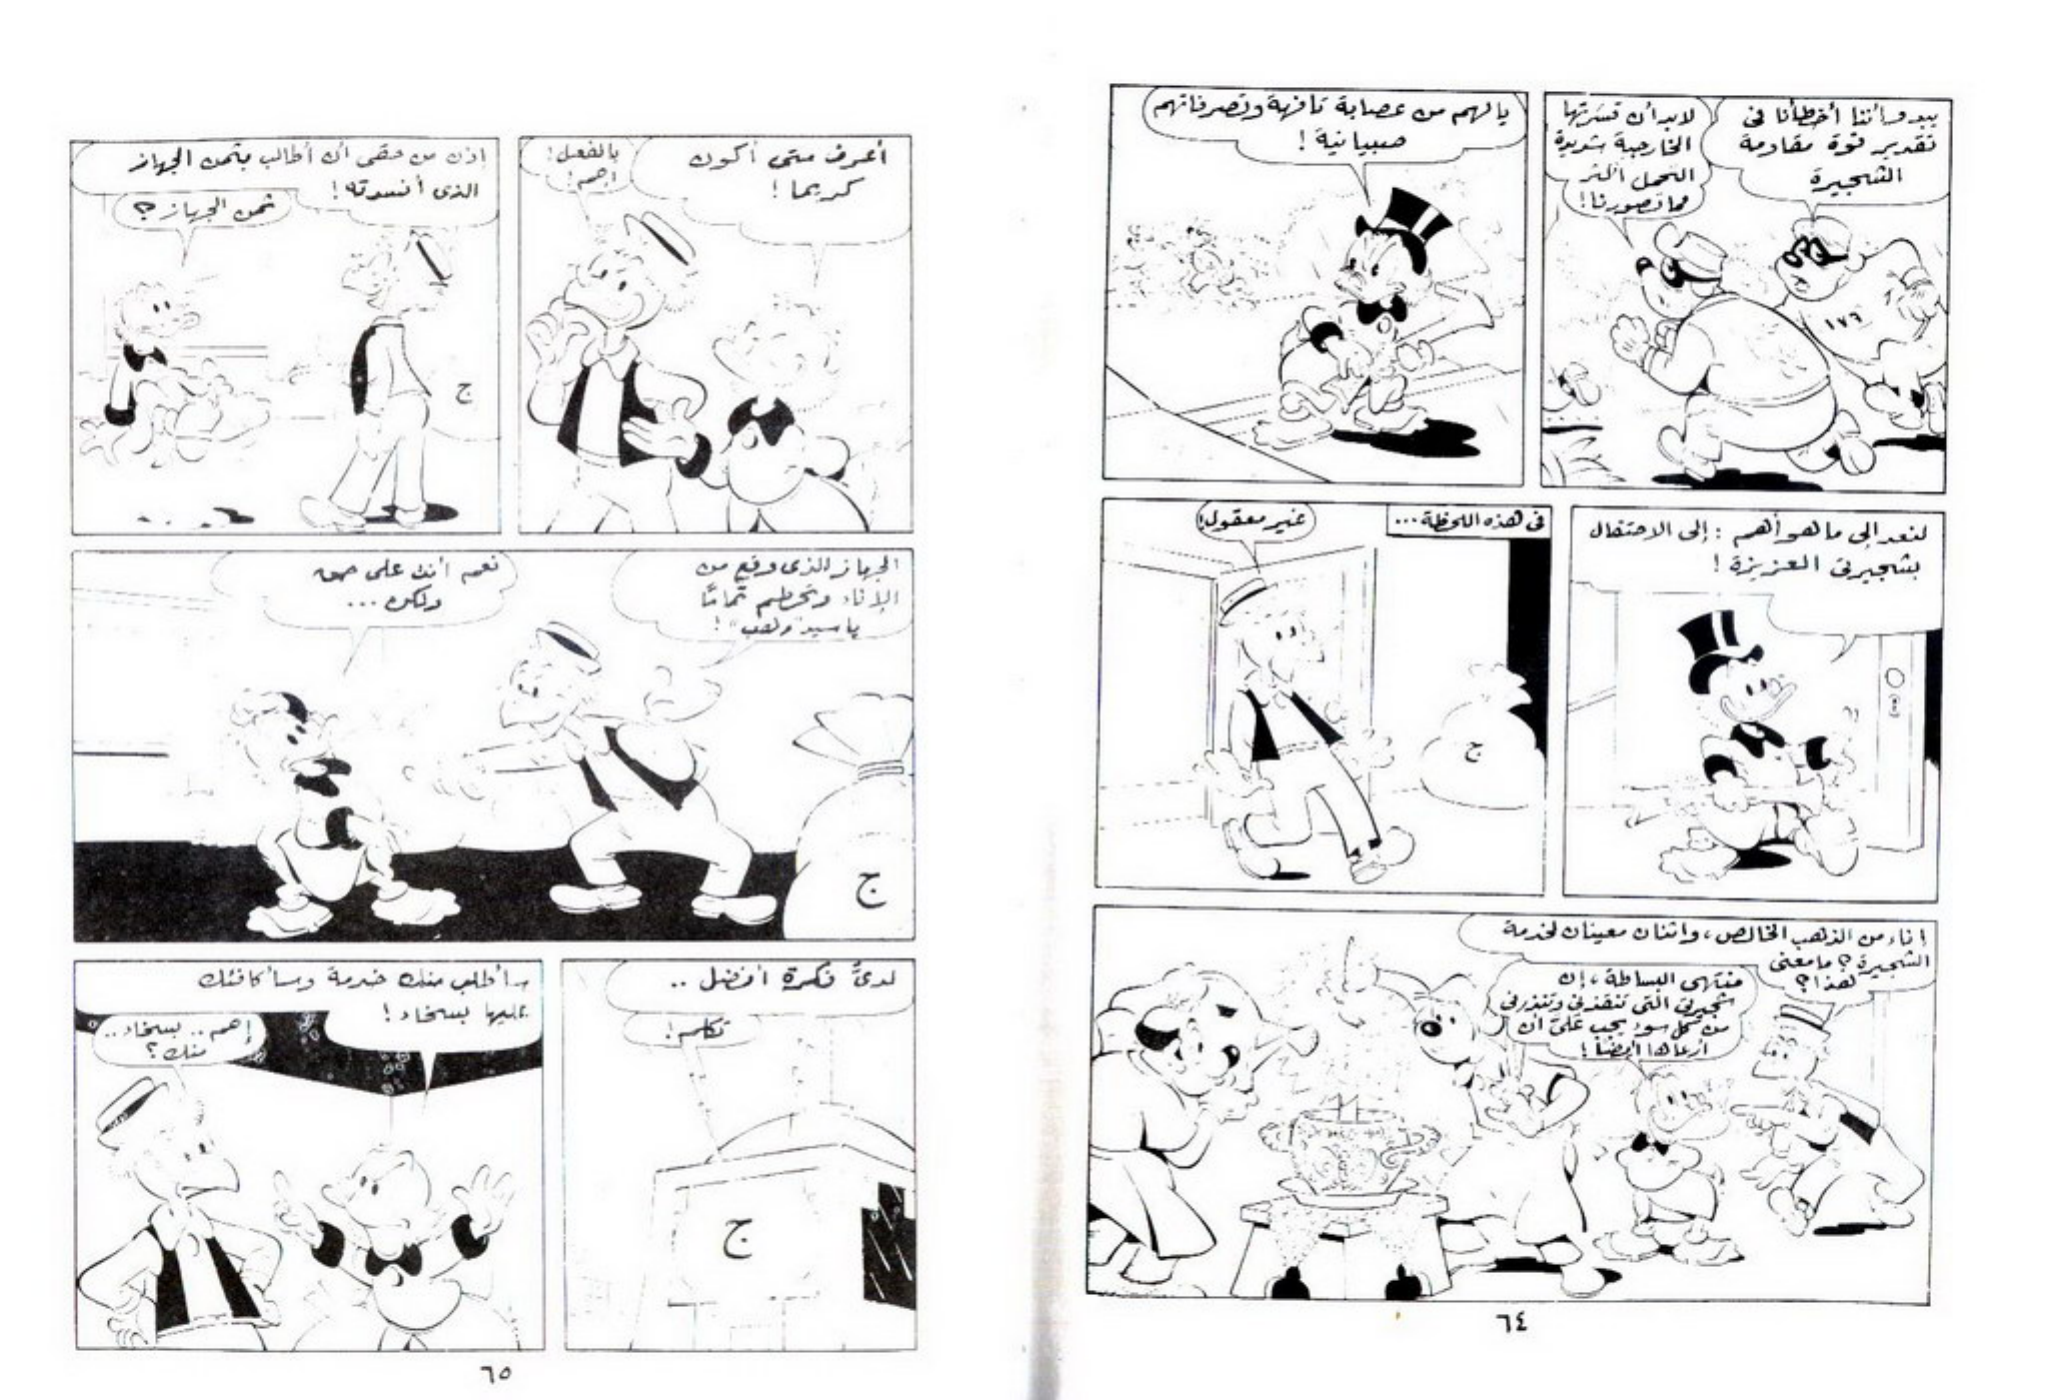 يبدو أننا أخطأنا فى
تقدير قوة مقاومة
الشجيرة
لابد أن قشرتها
الخارجية شديدة
التحمل أكثر
مما تصورنا!
١٧٦
يالهم من عصابة تافهة وتصرفاتهم
صبيانية!
لنعد إلى ما هو أهم : إلى الاحتفال
بشجيرتى العزيزة!
فى هذه اللحظة...
غير معقول!
ج
إناء من الذهب الخالص، واثنان معينان لخدمة
الشجيرة؟ ما معنى
هذا؟
منتهى البساطة، إن
شجيرتى التى تنقذنى وتنذرنى
من كل سوء يجب علىّ أن
أرعاها أيضا!
٦٤
أعرف متى أكون
كريما!
بالفعل!
إهم!
إذن من حقى أن أطالب بثمن الجهاز
الذى أفسدته!
ثمن الجهاز؟
ج
الجهاز الذى وقع من
الإناء وتحطم تمامًا
ياسيد "دهب"!
نعم أنت على حق
ولكن...
ج
لدىَّ فكرة أفضل ..
تكلم!
ج
سأطلب منك خدمة وسأكافئك
عليها بسخاء!
إهم.. بسخاء..
منك؟
٦٥